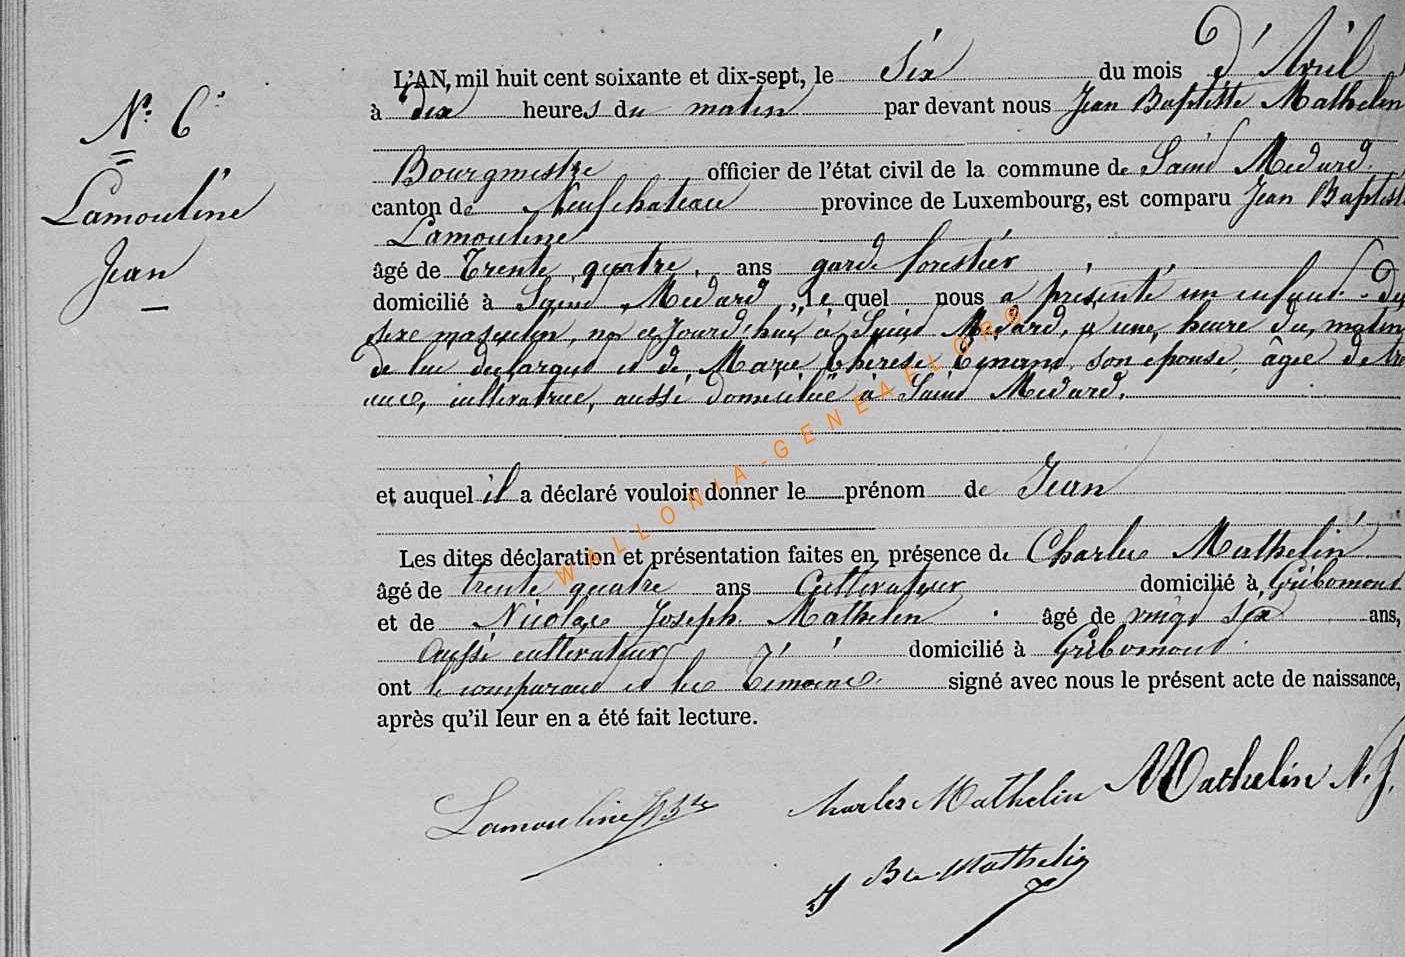 N.º 6
Lamouline
Jean
L'AN, mil huit cent soixante et dix-sept, le six du mois d'Avril
à dix heures du matin par devant nous Jean Baptiste Mathelin
Bourgmestre officier de l'état civil de la commune de Saint Medard
canton de Neufchateau province de Luxembourg, est comparu Jean Baptist
Lamouline
âgé de Trente quatre ans garde forestier
domicilié à Saint Medard, le quel nous a présenté un enfant du
sexe masculin, né cejourd'hui à Saint Medard, à une heure du matin
de lui déclarant et de Marie Thérèse son épouse, âgée de
cultivatrice, aussi domiciliée à Saint Medard.
et auquel il a déclaré vouloir donner le prénom de Jean
Les dites déclaration et présentation faites en présence de Charles Mathelin
âgé de trente quatre ans Cultivateur domicilié à Gribomont
et de Nicolas Joseph Mathelin âgé de vingt six ans,
aussi cultivateur domicilié à Gribomont
ont le comparant et les Témoins signé avec nous le présent acte de naissance,
après qu'il leur en a été fait lecture.
Lamouline JBte
Charles Mathelin
Mathelin N. J.
J Bte Mathelin
WALLONIA-GENEAELOR®